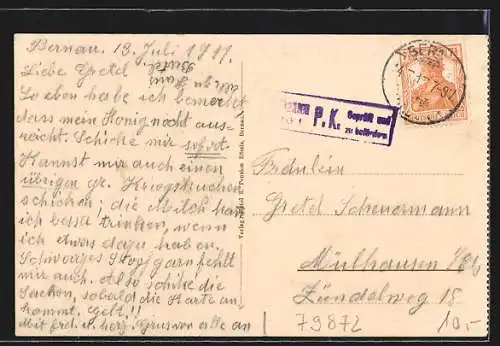 Bernau. 13. Juli 1917.
Liebe Gretel
So eben habe ich bemerkt
dass mein Honig nicht aus-
reicht. Schicke mir sofort.
Kannst mir auch einen
übrigen gr. Kriegskuchen
schicken; die Milch kann
ich besser trinken, wenn
ich etwas dazu haben.
Schwarzes Stopfgarn fehlt
mir auch. Also schike die
Sachen, sobald die Karte an-
kommt. gelt!!
Mit frd. u. herz. Gruss von alle an
Geprüft und
P.K.
zu befördern
Fräulein
Gretel Scheuermann
Mülhausen i/Els
Zündelweg 18
79872
10,-